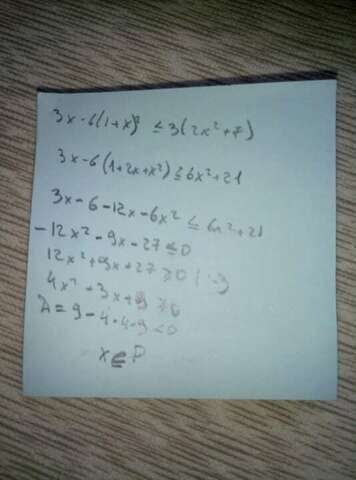 3x-6(1+x)² ≤3(2x²+7)
3x-6(1+2x+x²)≤6x²+21
3x-6-12x-6x² ≤ 6x²+21
-12x²-9x-27≤0
12x²+9x+27≥0 |:3
4x²+3x+9≥0
D=9-4·4·9<0
x∈R